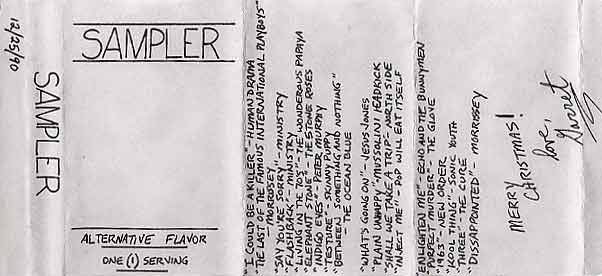 12/25/90
SAMPLER
SAMPLER
ALTERNATIVE FLAVOR
ONE (1) SERVING
"I COULD BE A KILLER" - HUMAN DRAMA
"THE LAST OF THE FAMOUS INTERNATIONAL PLAYBOYS"
- MORRISSEY
"SAY YOU'RE SORRY" - MINISTRY
"FLASHBACK" - MINISTRY
"LIVING IN THE 70'S" - THE WONDEROUS PAPAYA
"ELEPHANT STONE" - THE STONE ROSES
"INDIGO EYES" - PETER MURPHY
"TESTURE" - SKINNY PUPPY
"BETWEEN SOMETHING AND NOTHING"
- THE OCEAN BLUE
"WHAT'S GOING ON" - JESUS JONES
"PLAIN UNHAPPY" - MUSSOLINI HEADKICK
"SHALL WE TAKE A TRIP" - NORTH SIDE
"INJECT ME" - POP WILL EAT ITSELF
"ENLIGHTEN ME" - ECHO AND THE BUNNYMEN
"PERFECT MURDER" - THE GLOVE
"1963" - NEW ORDER
"KOOL THING" - SONIC YOUTH
"THREE" - THE CURE
"DISSAPPOINTED" - MORRISSEY
MERRY
CHRISTMAS!
love,
Garret